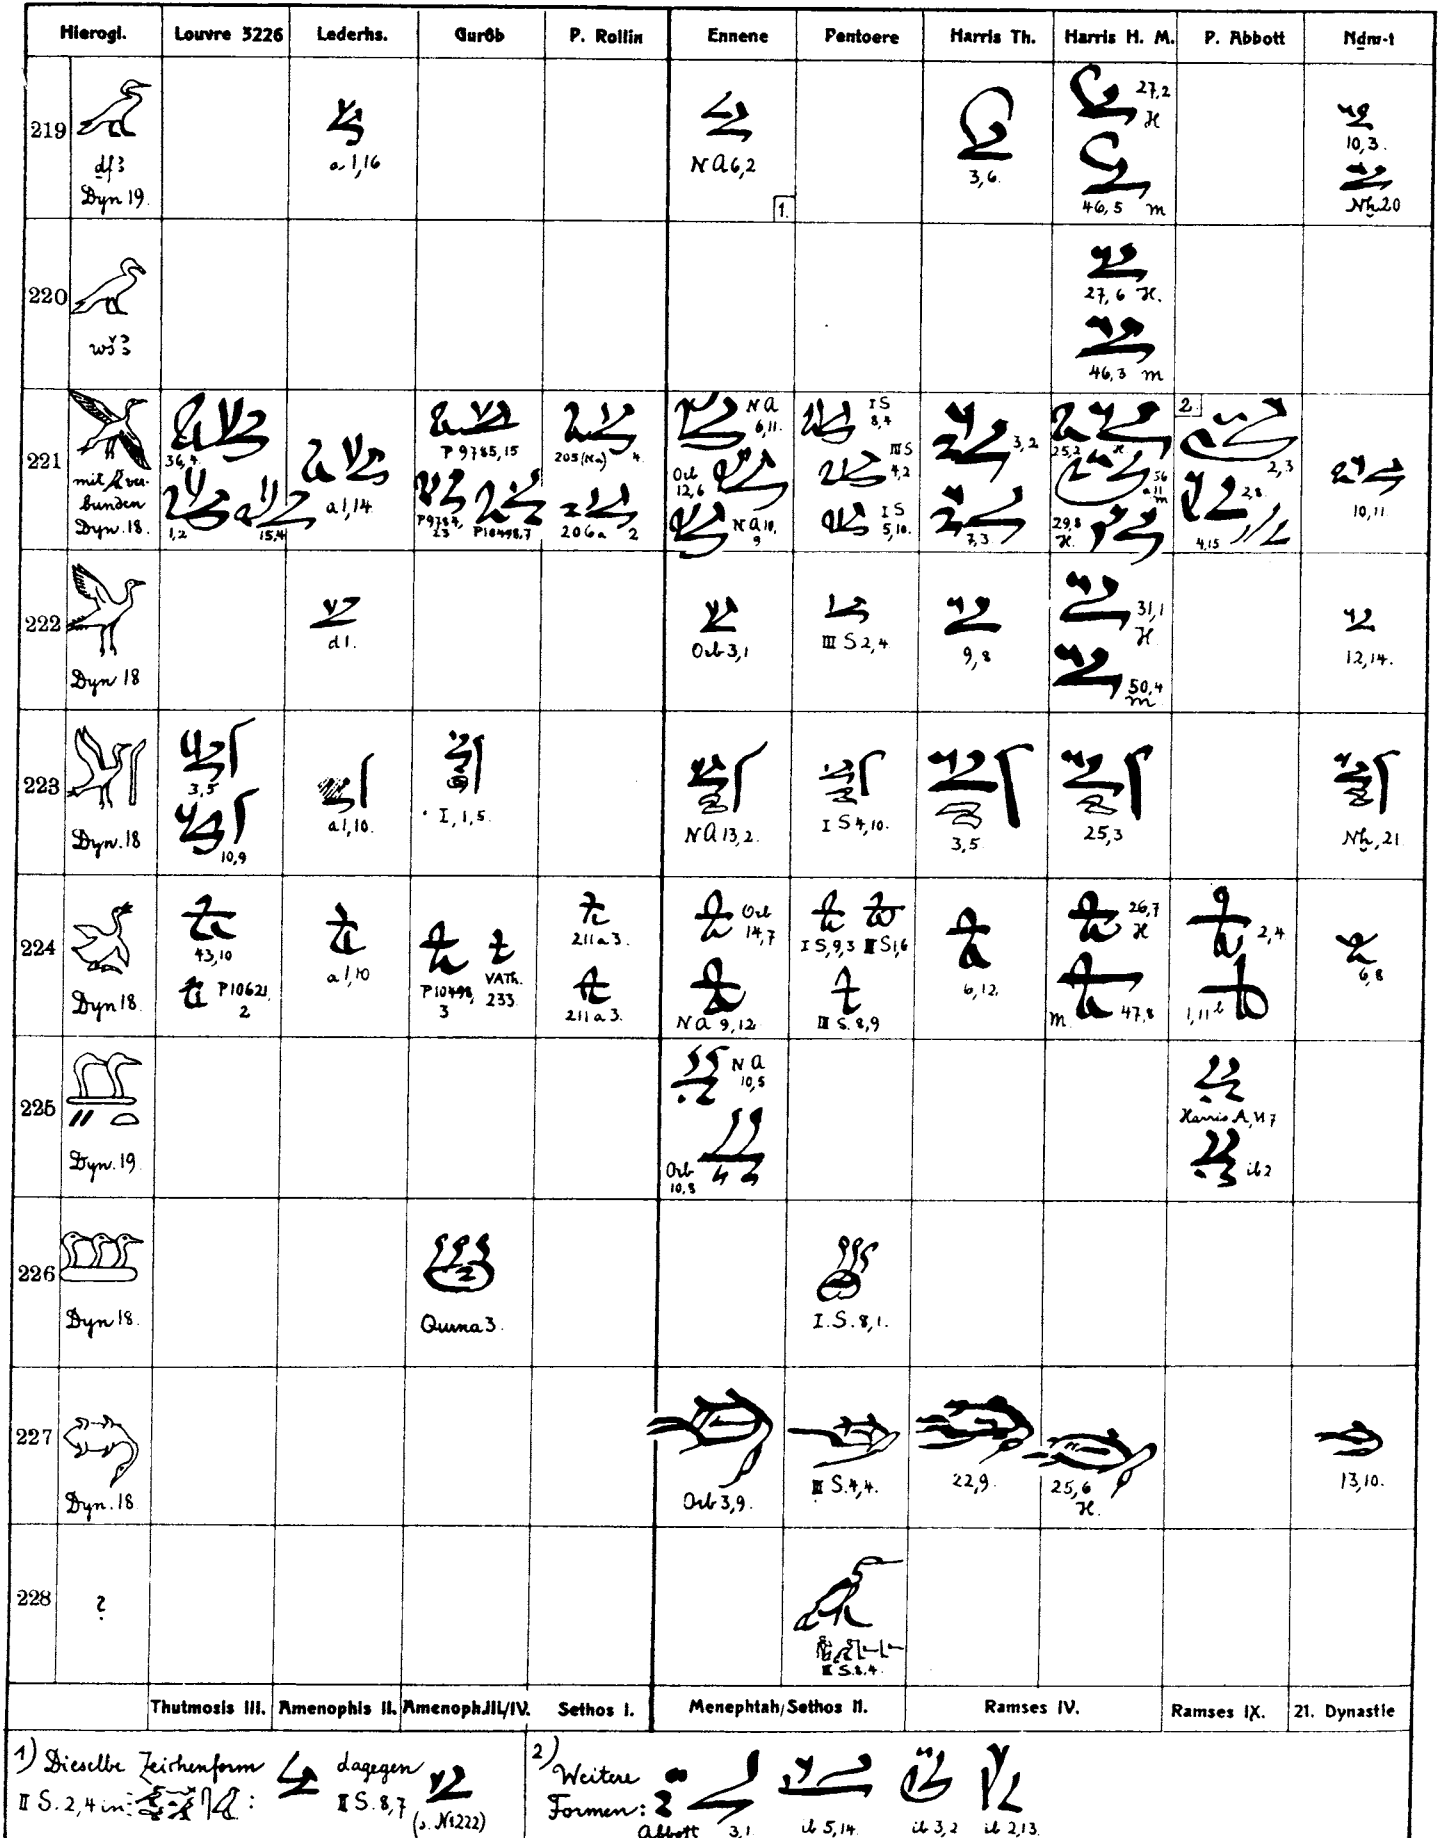 Hierogl. Louvre 3226 Lederhs. Gurôb P. Rollin Ennene Pentoere Harris Th. Harris H. M. P. Abbott Nḏm-t
219 ḏf3 Dyn 19. a. 1,16 N A 6,2 1. 3,6. 27,2 H 46,5 m 10,3. Nḫ. 20
220 wš3 27,6 H. 46,3 m
221 mit verbunden Dyn. 18. 36,4. 1,2 15,4 a 1,14. P 9785,15 P 9784,23 P 10498,7 205 (Ra) 4. 206a 2 N A 6,11. Orb 12,6 N A 10,9 I S 8,4 III S 4,2 I S 5,10. 3,2 7,3 25,2 H 56 a 11 m 29,8 H. 2. 2,3 2,8 4,15 10,11.
222 Dyn 18 d 1. Orb 3,1 III S 2,4. 9,8 31,1 H. 50,4 m 12,14.
223 Dyn. 18 3,5 10,9 a 1,10. I, 1,5. N A 13,2. I S 4,10. 3,5. 25,3 Nḫ, 21
224 Dyn 18. 43,10 P 10621, 2 a 1,10 P 10498, 3 VATh. 233 211 a 3. 211 a 3. Orb 14,7 N A 9,12. I S, 9,3 II S 1,6 III S. 8,9 6,12. 26,7 H m. 47,8 2,4 1,11 b 6,8
225 Dyn. 19. N A 10,5 Orb 10,8 Harris A, 4,7 ib 2
226 Dyn 18. Qurna 3. I. S. 8,1.
227 Dyn. 18 Orb 3,9. III S. 4,4. 22,9. 25,6 H. 13,10.
228 ? II S. 8,4.
Thutmosis III. Amenophis II. Amenoph. III/IV. Sethos I. Menephtah/Sethos II. Ramses IV. Ramses IX. 21. Dynastie
1) Dieselbe Zeichenform dagegen
II S. 2,4 in: : II S. 8,7 (s. No 222)
2) Weitere
Formen: Abbott 3,1. ib 5,14. ib 3,2 ib 2,13.